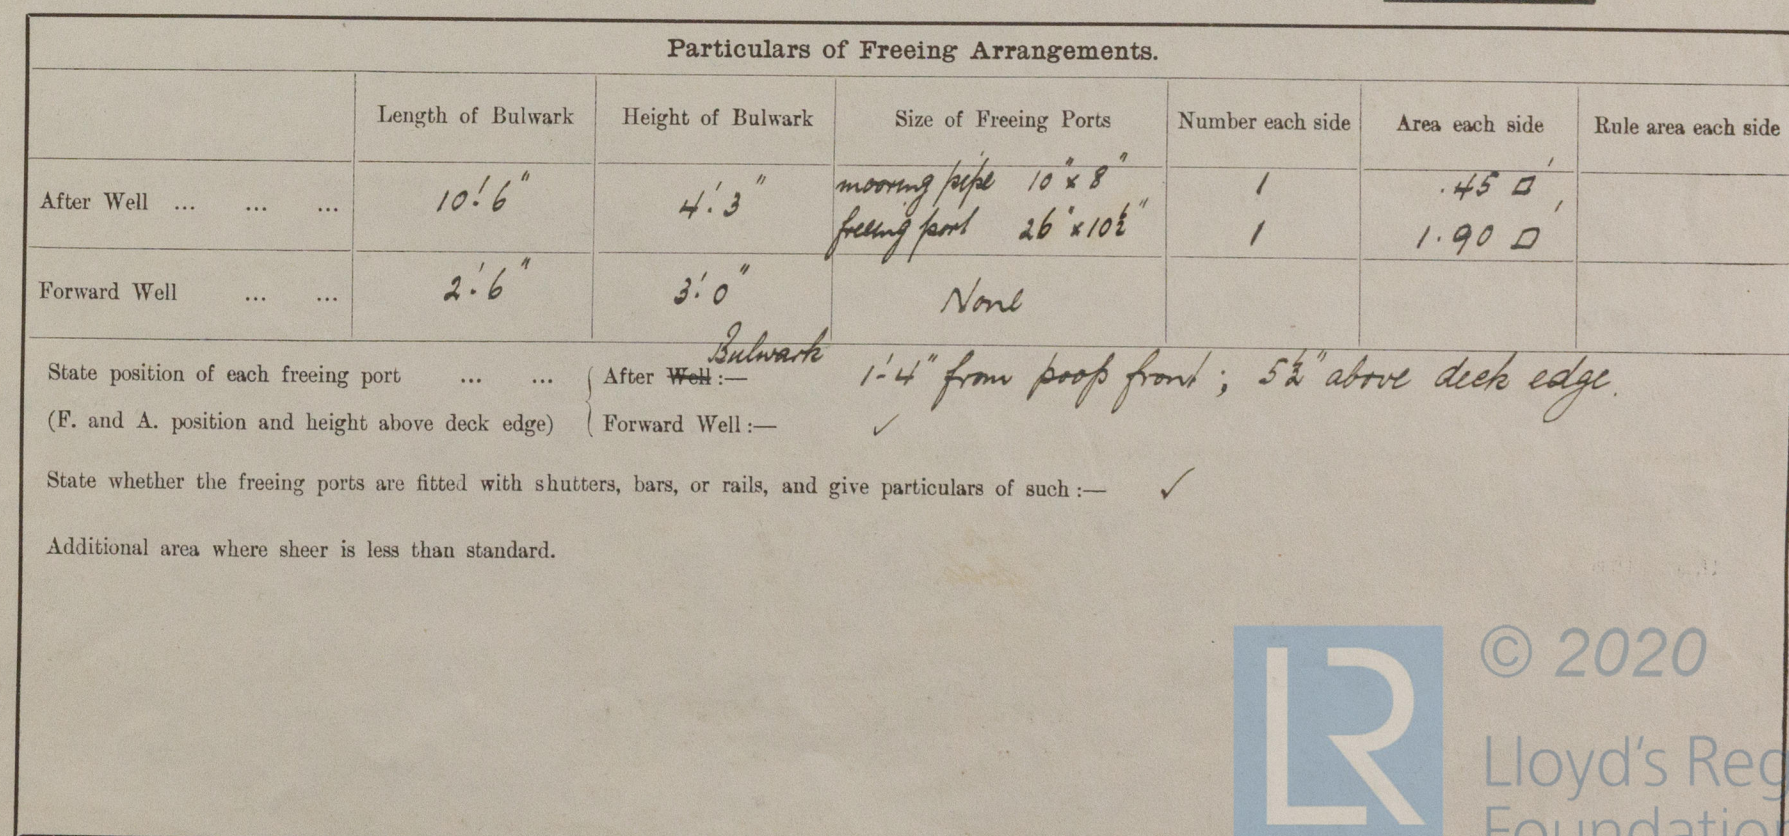 Particulars of Freeing Arrangements.
Length of Bulwark Height of Bulwark Size of Freeing Ports Number each side Area each side Rule area each side
After Well ... ... ... 10'.6" 4'.3" mooring pipe 10" x 8" 1 .45 □'
freeing port 26" x 10½" 1 1.90 □'
Forward Well ... ... 2'.6" 3'.0" None
Bulwark
State position of each freeing port ... ... After Well :— 1'-4" from poop front ; 5½" above deck edge.
(F. and A. position and height above deck edge) Forward Well :— ✓
State whether the freeing ports are fitted with shutters, bars, or rails, and give particulars of such :— ✓
Additional area where sheer is less than standard.
© 2020
LR
Lloyd's Reg
Foundation